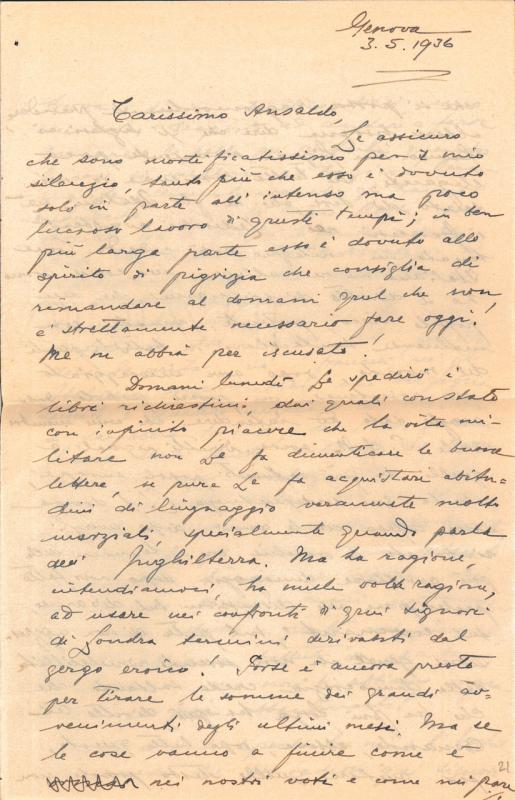 Genova
3.5.1936
Carissimo Ansaldo,
Le assicuro
che sono mortificatissimo per il mio
silenzio, tanto più che esso è dovuto
solo in parte all'intenso ma poco
lucroso lavoro di questi tempi; in ben
più larga parte esso è dovuto allo
spirito di pigrizia che consiglia di
rimandare al domani quel che non
è strettamente necessario fare oggi!
Me ne abbia per iscusato!
Domani lunedì Le spedirò i
libri richiestimi, dai quali constato
con infinito piacere che la vita mi-
litare non Le fa dimenticare le buone
lettere, se pure Le fa acquistare abitu-
dini di linguaggio veramente molto
marziali, specialmente quando parla
dell'Inghilterra. Ma ha ragione,
intendiamoci, ha mille volte ragione,
ad usare nei confronti di quei signori
di Londra termini derivati dal
gergo eroico! Forse è ancora presto
per tirare le somme dei grandi av-
venimenti degli ultimi mesi. Ma se
le cose vanno a finire come è
nei nostri voti e come mi pare
21